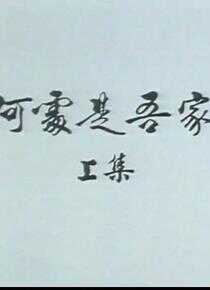 何處是吾家
上集